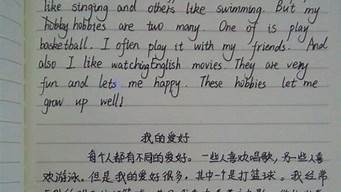 like singing and others like swimming. But my
hobby hobbies are two many. One of is play
basketball. I often play it with my friends. And
also I like watching English movies. They are very
fun and lets me happy. These hobbies let me
grow up well!
我的爱好
每个人都有不同的爱好。一些人喜欢唱歌，另一些人喜
欢游泳。但是我的爱好很多，其中一个是打篮球。我经常